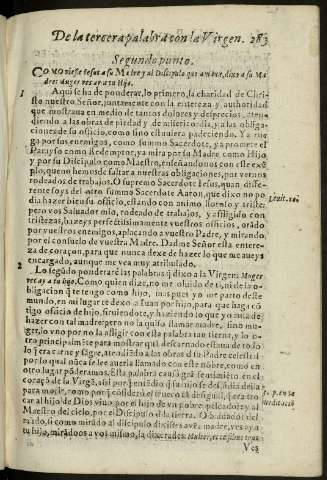 De la tercera palabra con la Virgen. 283
Segundo punto.
Como viesse Jesus a su Madre y al Discipulo que amaba, dixo a su Ma
dre: Muger ves ay a tu Hijo.
1 Aqui se ha de ponderar, lo primero, la charidad de Chris
sto nuestro Señor, juntamente con la entereza y authoridad
que mostraua en medio de tantos dolores y desprecios, atten
diendo a las obras de piedad y de misericordia, y a las obliga
ciones de su officio, como sino estuuiera padeciendo. Ya rue
ga por sus enemigos, como summo Sacerdote, ya promete el
Parayso como Redemptor, ya mira por su Madre como Hijo
y por su Discipulo como Maestro, enseñandonos con este exẽ
plo, que no hemos de faltar a nuestras obligaciones, por vernos
rodeados de trabajos. O supremo Sacerdote Iesus, quan diffe
rente soys del otro summo Sacerdote Aaron, que dixo no po
dia hazer bien su officio, estando con animo lloroso y triste: Leuit. 10.
pero vos Saluador mio, rodeado de trabajos, y afligido con
tristezas, hazeys perfectissimamente vuestros officios, orãdo
por vuestros enemigos, aplacando a vuestro Padre, y mirando
por el consuelo de vuestra Madre. Dadme Señor esta entere
za de coraçon, para que nunca dexe de hazer lo que me aueys
encargado, aunque me vea muy atribulado.
2 Lo segũdo ponderaré las palabras q̃ dixo a la Virgen: Muger
ves ay a tu hijo. Como quien dize, no me oluido de ti, ni de la o-
bligacion q̃ te tengo como hijo, mas pues yo me parto deste
mundo, en mi lugar te dexo a Iuan por hijo, para que haga cõ
tigo officio de hijo, siruiendote, y haziendo lo que yo auia de
hazer con tal madre: pero no la quiso llamar madre, sino mu-
ger, lo vno por no la afligir con esta palabra tan tierna, y lo o-
tro principalmẽte para mostrar quã descarnado estaua de to lo
lo q̃ era carne y sãgre, atendiẽdo a las obras de su Padre celestial
por lo qual nũca se lee auerla llamado con este nõbre, como en
otro lugar põderamos. Esta palabra causò grã sentimiẽto en el
coraçõ de la Virgẽ, assi por
para morir, como porq̃ cõsiderò el trueco tã desigual, q̃ era tro
car al hijo de Dios viuo por el hijo de vn pobre pescador, y al
Maestro del cielo, por el Discipulo de la tierra. O Saluador
si, como mirãdo al dicipulo dixistes a vr̃a madre, ves ay a
tu hijo, mirãdoos a vos mismo, la dixerades
Vos